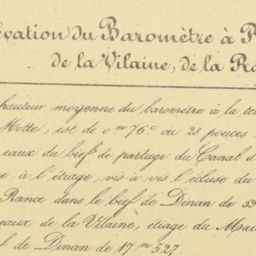 évation du Baromètre à R
de la Vilaine, de la Ra
hauteur moyenne du baromètre à la te
Motte, est de 0m 76c ou 28 pouces
eaux du bief de partage du Canal d
à l'étiage, vis à vis l'écluse du
Rance dans le bief de Dinan de 5
eaux de la Vilaine, étiage du Ma
l de Dinan de 17m 527